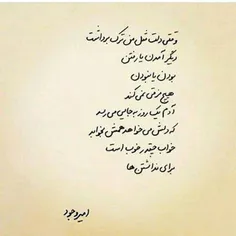 وقتی دلت مثل من ترک برداشت
دیگر آمدن یا رفتن
بودن یا نبودن
هیچ فرقی نمی کند
آدم یک روز به جایی می رسد
که دلش می خواهد همش بخوابد
خواب چیقدر خوب است
برای نداشتن ها
امیر وجود